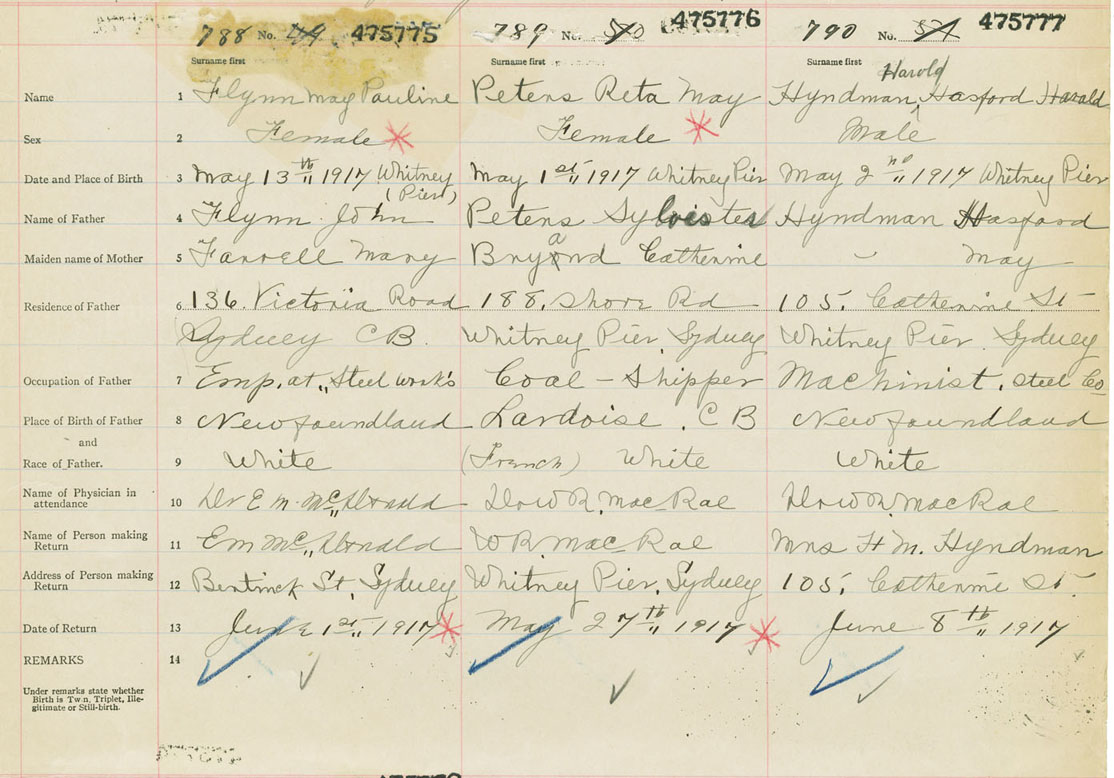 788 No. 475775 789 No. 475776 790 No. 475777
Surname first Surname first Surname first
Harold
Name 1 Flynn may Pauline Peters Reta May Hyndman, Hasford Harald
Sex 2 Female Female Male
Date and Place of Birth 3 May 13th 1917 Whitney (Pier) May 1st 1917 Whitney Pier May 2nd 1917 Whitney Pier
Name of Father 4 Flynn John Peters Sylvester Hyndman Hasford
Maiden name of Mother 5 Farrell Mary Bryand Catherine - May
Residence of Father 6 136. Victoria Road 188. Shore Rd 105. Catherine St
Sydney C B. Whitney Pier, Sydney Whitney Pier. Sydney
Occupation of Father 7 Emp. at Steel works Coal - Shipper Machinist. Steel Co
Place of Birth of Father 8 Newfoundland Lardoise. C B Newfoundland
and
Race of Father. 9 White (French) White White
Name of Physician in attendance 10 Dr E m. McDonald Dr W R. MacRae Dr W R. MacRae
Name of Person making Return 11 E m McDonald W R. MacRae Mrs H m. Hyndman
Address of Person making Return 12 Bentinck St, Sydney Whitney Pier, Sydney 105, Catherine St.
Date of Return 13 June 1st 1917 May 27th 1917 June 8th 1917
REMARKS 14
Under remarks state whether
Birth is Twin, Triplet, Ille-
gitimate or Still-birth.